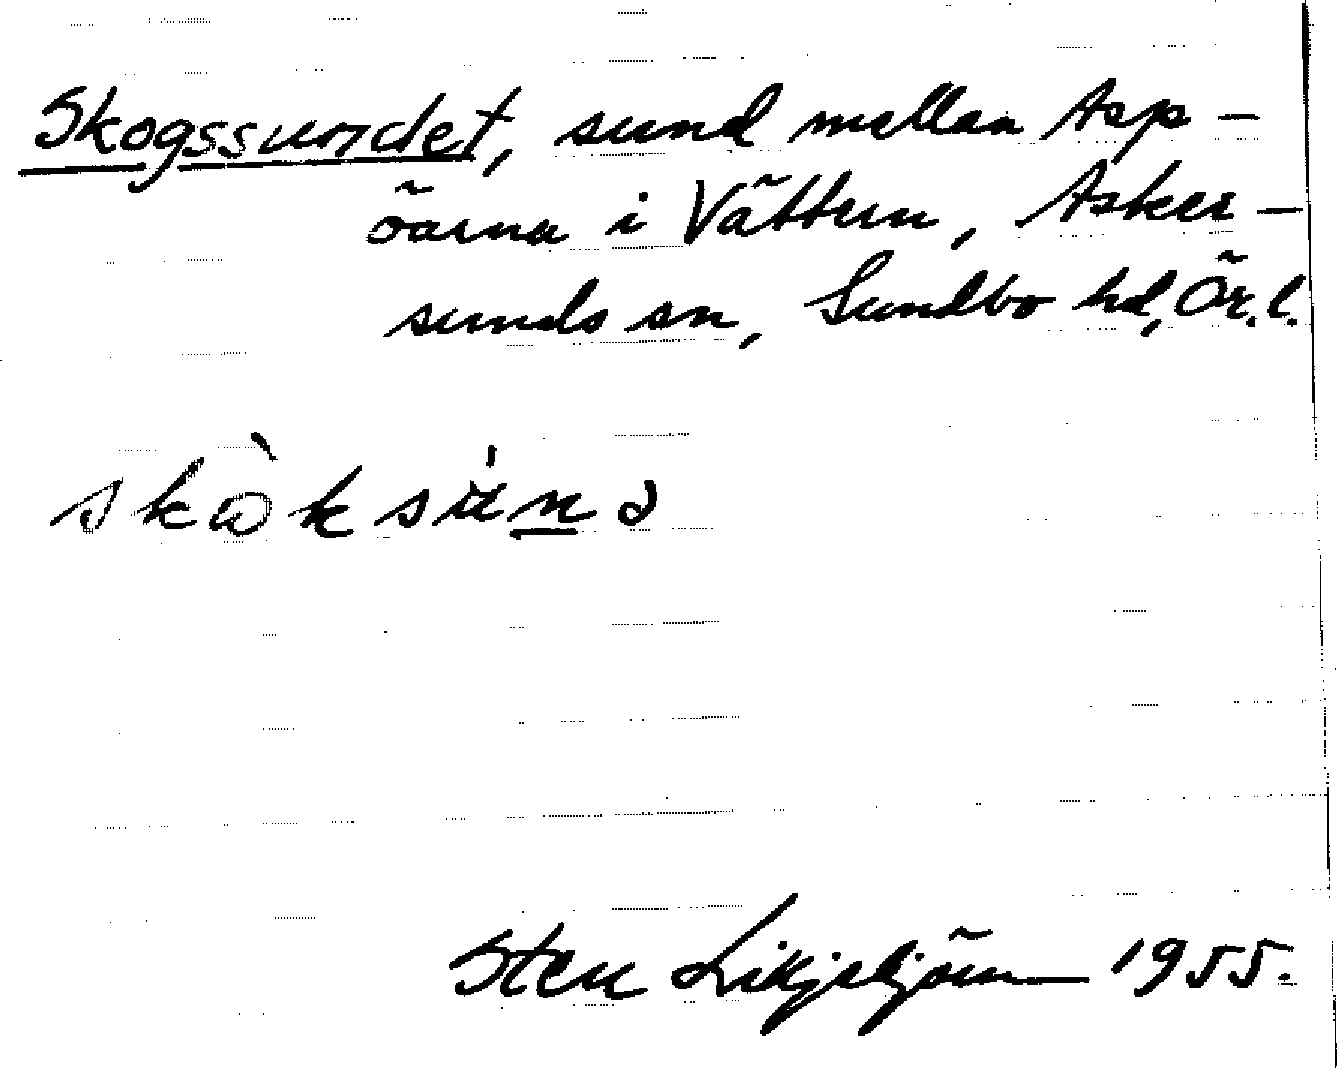 Skogssundet, sund mellan Asp-
öarna i Vättern, Asker-
sunds sn, Sundbo hd, Ör. l.
Sten 1955.